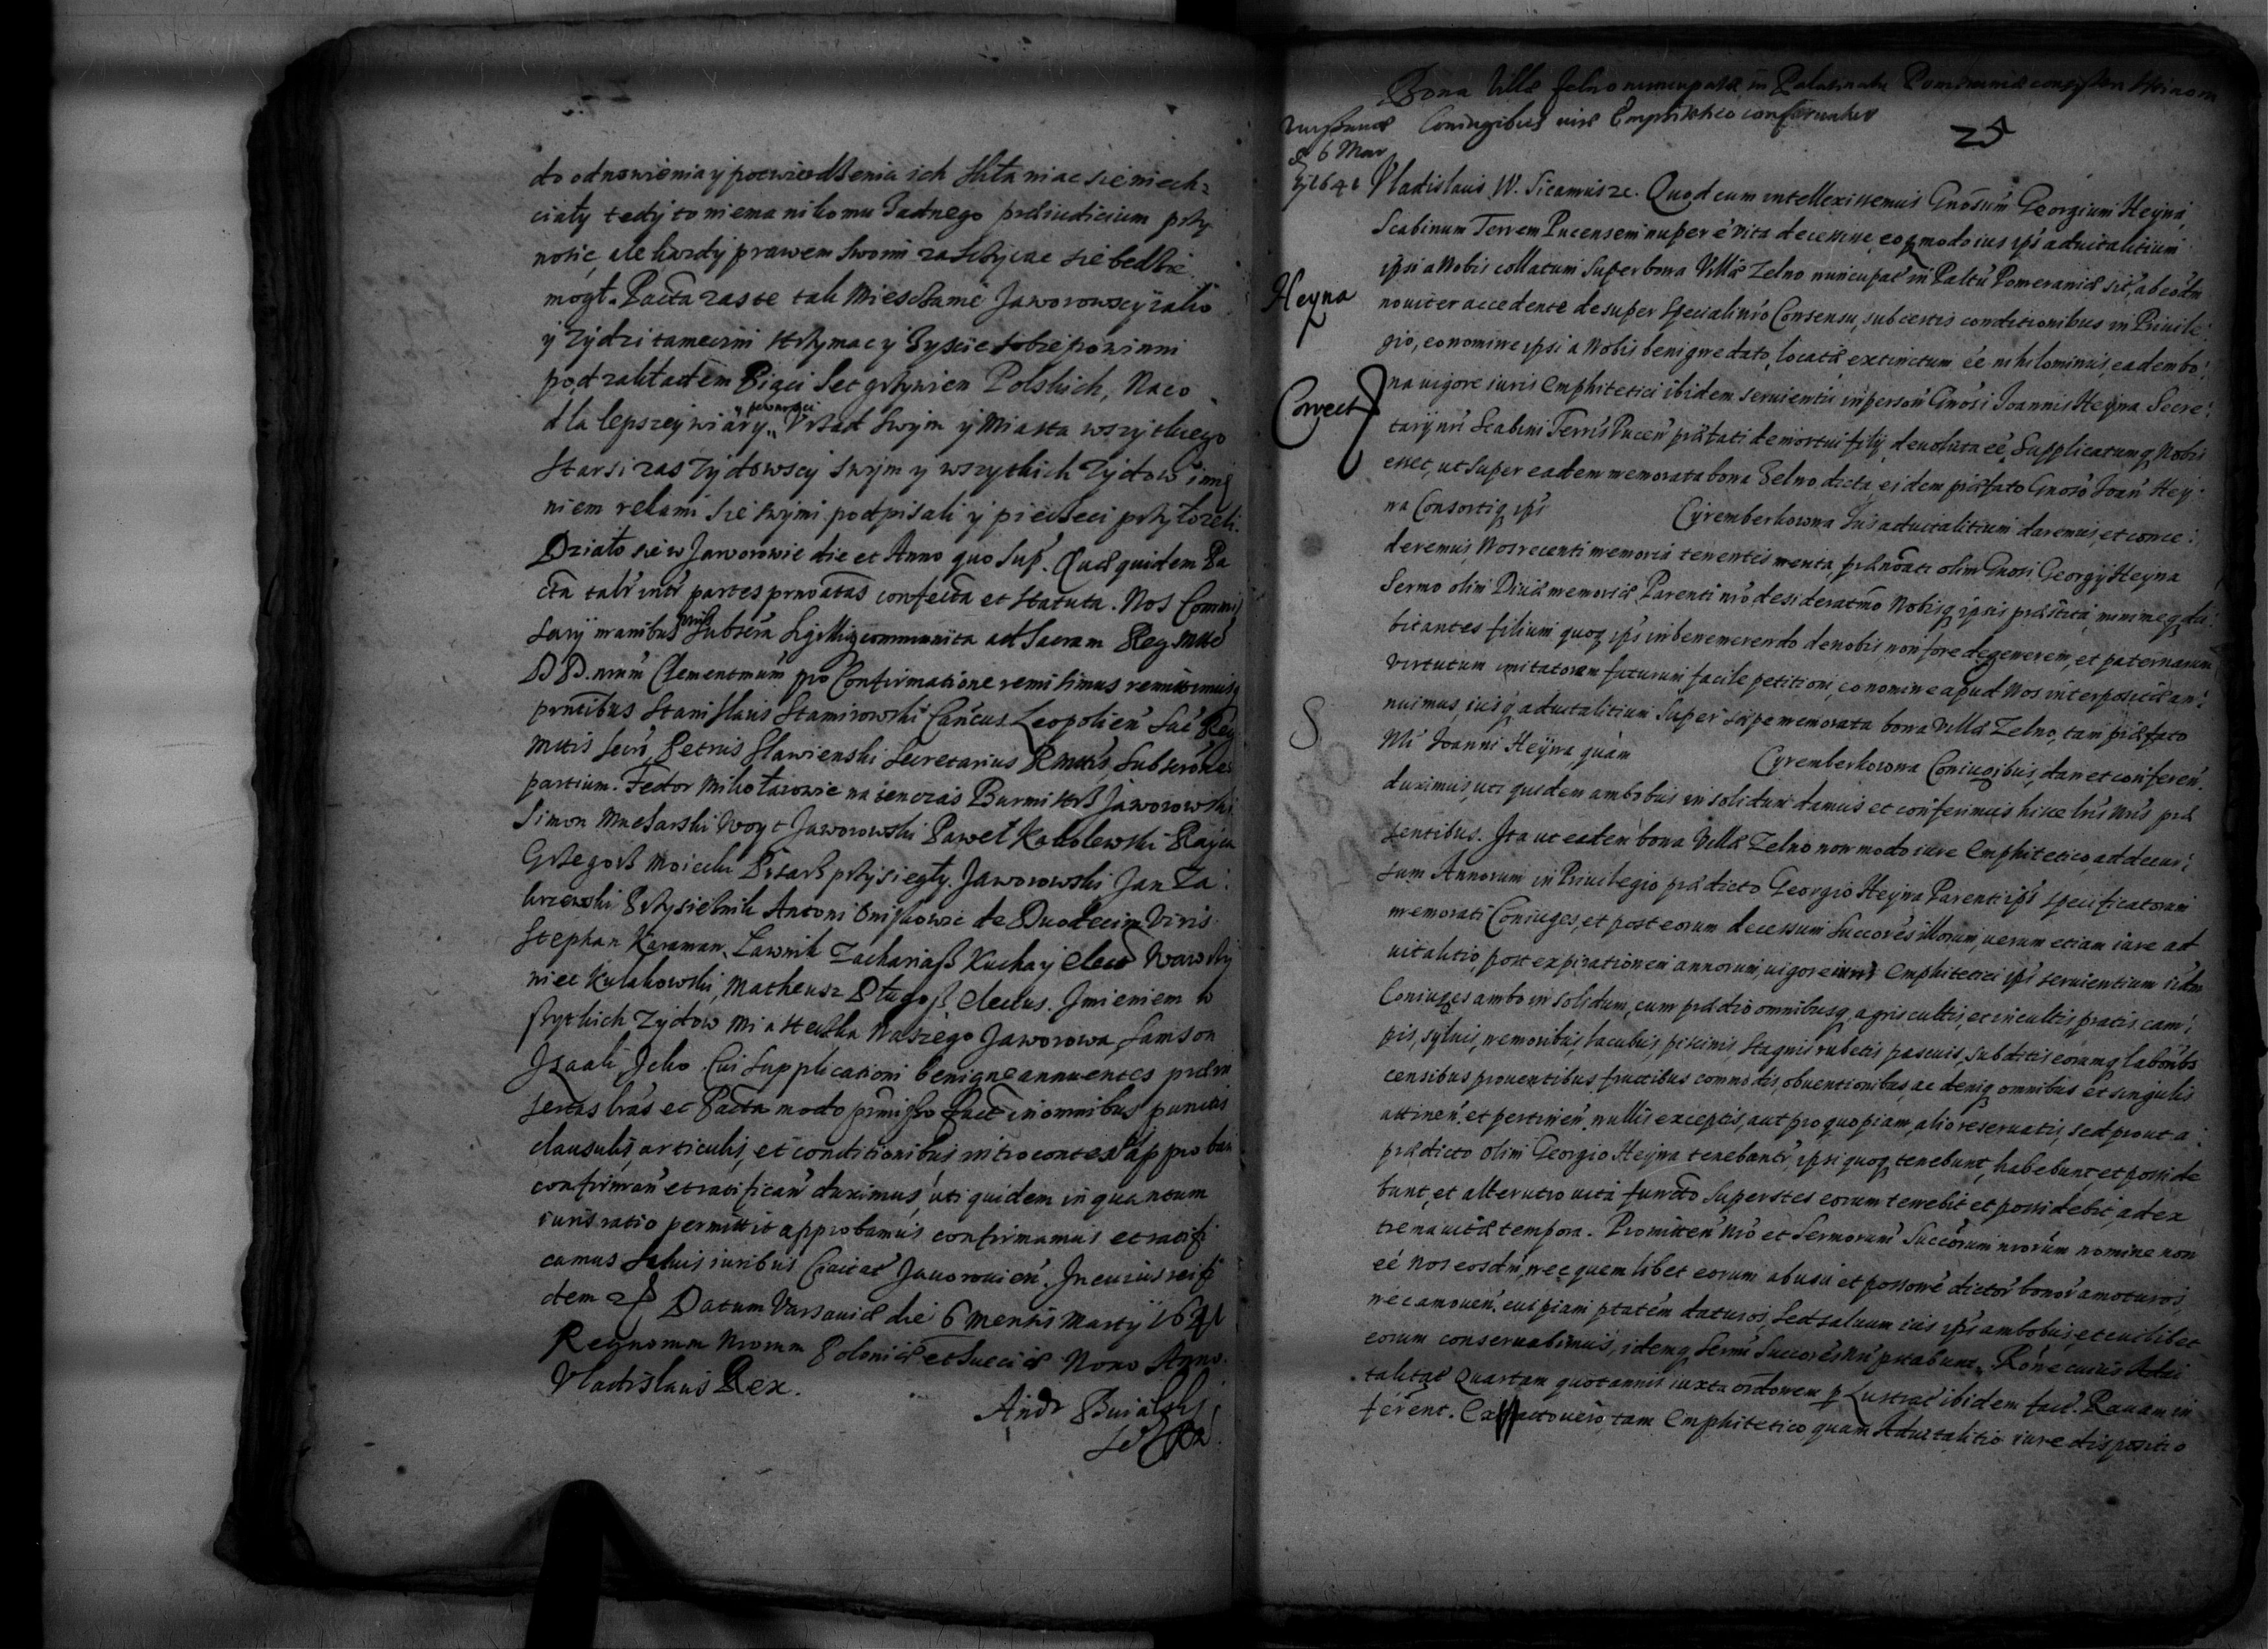 do odnowienia y potwierdzenia ich skłaniac sie niech-
ciały tedy to niema nikomu żadnego præiudicium przy
nosić, ale kazdy prawem swoim zaszczycac sie bedzie
mogł. Pacta zas te tak Miesczanie Jaworowscy iako
y Zydzi tameczni strzymac y zyscie sobie powinni
pod zakładem Pięci Set grzywien Polskich, Na co
dla lepszey wiary y pewnosci Vrząd swym y Miasta wszytkiego
Starsi zas Zydowscy swym y wszytkich Zydow imie
niem rekami sie swymi podpisali y pieczeci przyłozeli.
Działo sie w Jaworowie die et Anno quo sup. Quæ quidem Pa
cta talr intr partes prnoatas confecta et statuta. Nos Commis
sarij manibus nris subscra sigillisq communita ad Sacram Reg. Mtté
D D. nrum Clementmum pro Confirmatione remisimus remittimusq
prntibus Stanislaus Stamirowski Cancus Leopolien Sac Reg
Mttis Secr. Petrus Sławienski Secretarius R Mttis, Subscrones
partium. Fedor Mikołaiowic na ten czas Burmistrz Jaworowski
Simon Woyt Jaworowski Paweł Kobolewski Rayca
Grzegorz Pisarz przysiegły Jaworowski Jan Za:
krzewski Przysieznik Antoni de Duodecim Viris.
Stephan Karaman, Ławnik Zachariasz Kuchay Elect Wawrzy
niec Kulakowski, Matheusz Długosz, Electus. Jmieniem w
szytkich Zydow Miasteczka Naszego Jaworowa, Samson
Jzaak Jelio. Cui Supplicationi benigne annuentes præin
sertas lras et Pacta modo præmisso fact in omnibus punctis
clausulis, articulis, et conditionibus, in tro contes approban
confirman et ratifican duximus, uti quidem in quantum
iuris ratio permittit approbamus confirmamus et ratifi
camus Saluis iuribus Ciuitat Jauorouien. In cuius rei fi
dem Datum Varsauiæ die 6 Mensis Martij 1641
Regnorum Nrorum Poloniæ et Sueciæ Nono Anno.
Vladislaus Rex.
Andr Buialski
Bona Villæ Zelno nuncupatæ in Palatinatu Pomeraniæ consisten Heinom
Coniugibus iure Emphitetico conferuntur
25
Varsauiæ
d 6 Mar
tij 1641
Vladislaus IV. Sicamus &c. Quod cum intellexissemus Gnosum Georgium Heyna
Scabinum Terrem Pucensem nuper è vita decessisse, eoq modo ius ips aduitalitium
ipsi a Nobis collatum super bona Villæ Zelno nuncupat in Paltu Pomeraniæ sit, ab eodm
Heyna
nouiter accedente desuper speciali nro Consensu, sub certis conditionibus in Priuile:
gio, eo nomine ipsi a Nobis benigne dato, locatis, extinctum eé nihilominus, eadem bo:
Correct
na uigore iuris Emphitetici ibidem seruientis in person Gnosi Joannis Heyna Secre:
tarij nri Scabini Terris Pucen præfati demortui filij deuoluta eé. Supplicatumq Nobis
esset, ut super eadem memorata bona Zelno dicta, eidem præfato Gnoso Joan Hey:
na Consortiq ips Cyremberkowna Jus aduitalitium daremus, et conce:
deremus, Nos recenti memoria tenentes merita, prænoati olim Gnosi Georgij Heyna
Sermo olim Diuæ memoriæ Parenti nro desideratmo Nobisq ipsis præstita, minimeq du:
bitantes filium quoq ips in benemerendo de nobis, non fore degenerem, et paternarum
virtutum imitatorem futurum facile petitioni, eo nomine apud Nos interpositæ an:
S
nuimus, iusq aduitalitium super sæpe memorata bona Villæ Zelno, tam præfato
Joanni Heyna quàm Cyremberkowna Coniugibus, dan et conferen.
180
duximus, uti quidem ambobus in solidum damus et conferimus hisce lris nris præ
sentibus. Ita ut eadem bona Villæ Zelno non modo iure Emphitetico, ad decur:
sum Annorum in Priuilegio prædicto Georgio Heyna Parenti ips specificatorum
memorati Coniuges, et post eorum decessum Successores illorum, uerum etiam iure ad
uitalitio, post expirationem annorum, uigore iuris Emphitetici ips seruientium iidm
Coniuges ambo in solidum, cum prædio omnibusq agris cultis, et incultis, pratis, cam:
pis, syluis, nemoribus, lacubus, piscinis, stagnis rubetis pascuis, subditis eorumq laboribs
censibus prouentibus fructibus commodis, obuentionibus, ac deniq omnibus et singulis
attinen. et pertinen. nullis exceptis, aut pro quopiam, alio reseruatis, sed prout a
prædicto olim Georgio Heyna tenebantr, ipsi quoq tenebunt, habebunt, et posside
bunt, et alterutro uita functo superstes eorum tenebit et possidebit, ad ex
trema uitæ tempora. Promitten Nro et Sermorum Succorum nrorum nomine non
eé Nos eosdm, nec quemlibet eorum ab usu et possone dictor bonor amoturos,
nec amouen. cuipiam ptatem daturos, Sed saluum ius ips ambobus, et cuilibet
eorum conseruabimus, idemq Sermi Succores Nri prtabunt. Rone cuius Adui
talitat Quartam quotannis iuxta ordonem p Lustrat ibidem fact. Rauam in
ferent. Ex pacto uero, tam Emphitetico quam Aduitalitio iure dispositio